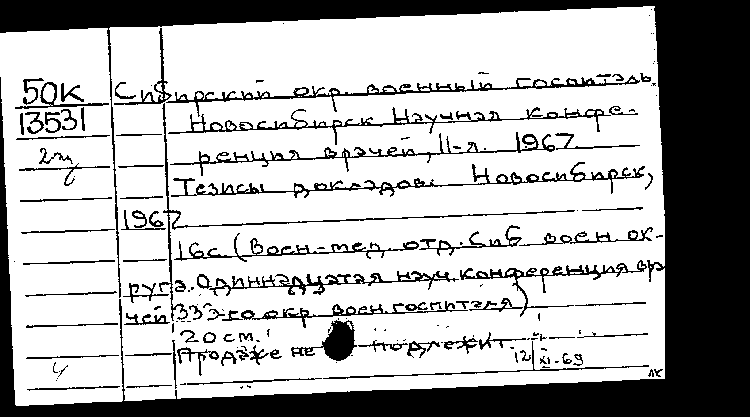 50К Сибирский окр. военный госпиталь
13531 Новосибирск Научная конфе-
2эк ренция врачей, II-я. 1967
Тезисы докладов. Новосибирск,
1967
16с (Воен.-мед. отд. Сиб воен. ок-
руга. Одиннадцатая науч. конференция вра
чей 333-го окр. воен. госпиталя)
20 см.
Продаже не подлежит.
12 XI-69